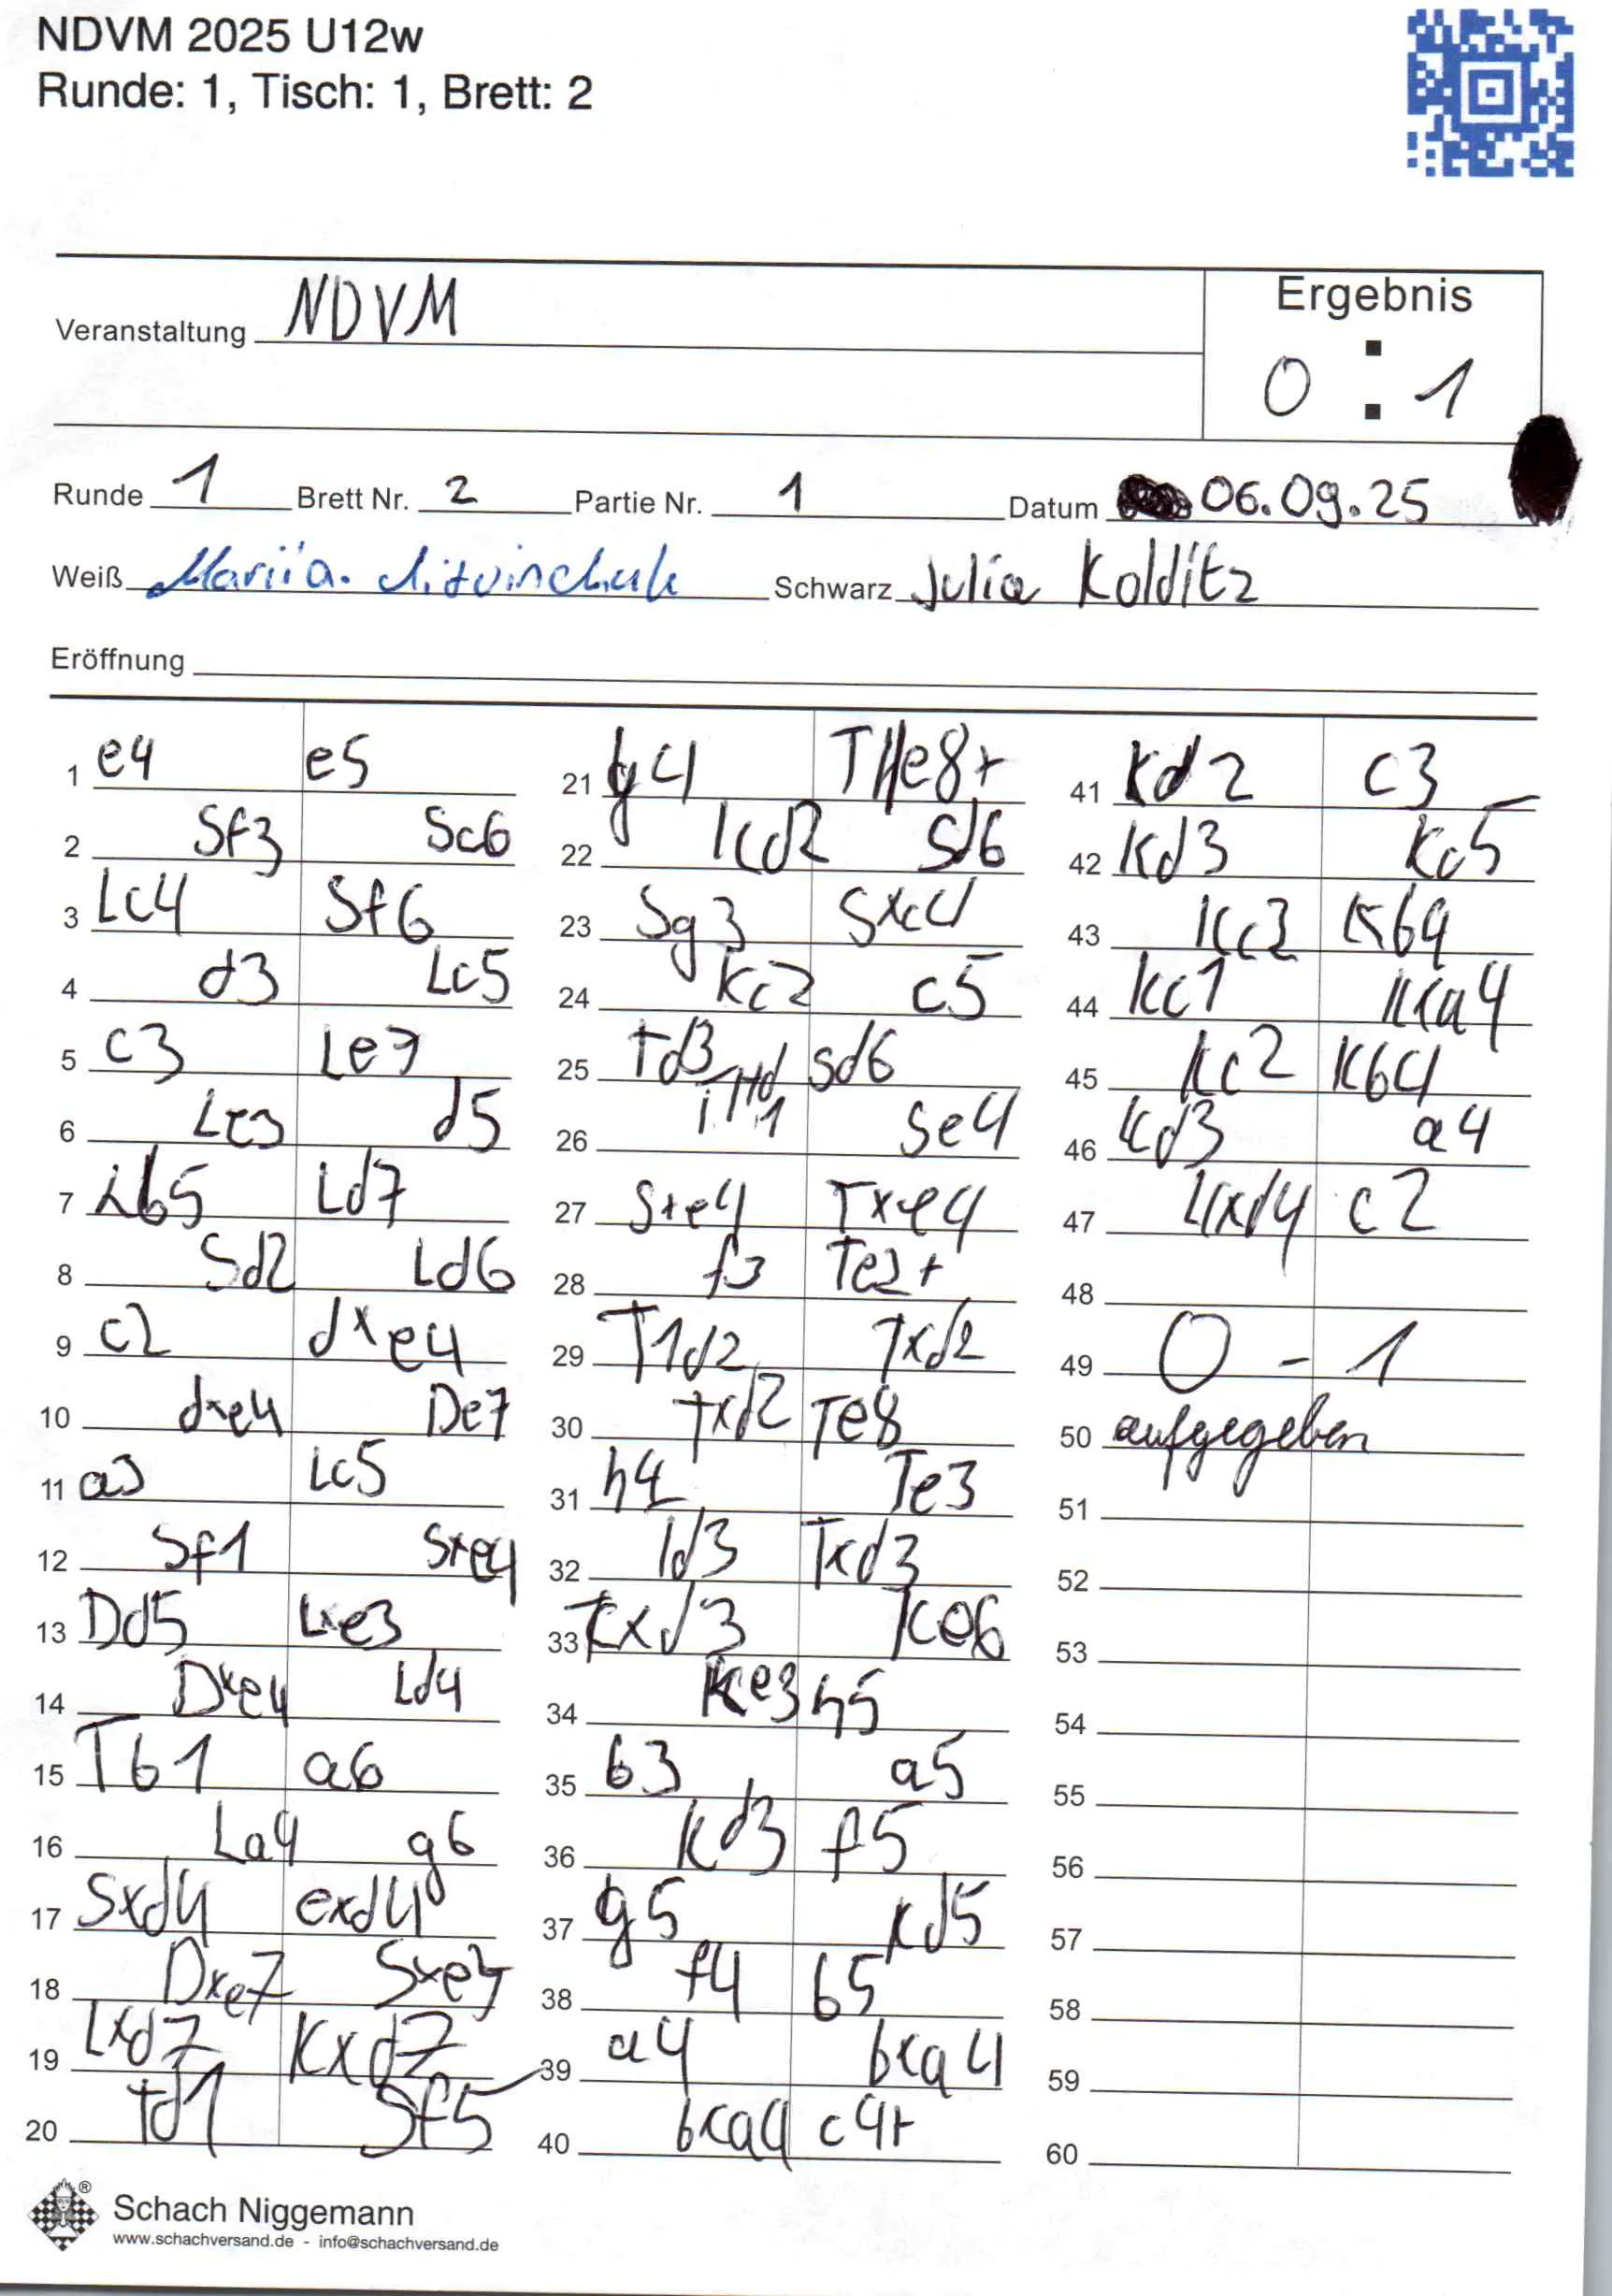 NDVM 2025 U12w
Runde: 1, Tisch: 1, Brett: 2
Veranstaltung NDVM
Ergebnis
0 : 1
Runde 1 Brett Nr. 2 Partie Nr. 1 Datum 06.09.25
Weiß Mariia Schwarz Julia Kolditz
Eröffnung
1 e4 e5
2 Sf3 Sc6
3 Lc4 Sf6
4 d3 Lc5
5 c3 Le7
6 Le3 d5
7 Lb5 Ld7
8 Sd2 Ld6
9 c2 dxe4
10 dxe4 De7
11 a3 Lc5
12 Sf1 Sxe4
13 Dd5 Lxe3
14 Dxe4 Ld4
15 Tb1 a6
16 La4 g6
17 Sxd4 exd4
18 Dxe7 Sxe7
19 Lxd7 Kxd7
20 Td1 Sf5
21 g4 THe8+
22 Kd2 Sd6
23 Sg3 Sxc4
24 Kc2 c5
25 Td3 Sd6
26 THd1 Se4
27 Sxe4 Txe4
28 f3 Te2+
29 T1d2 Txd2
30 Txd2 Te8
31 h4 Te3
32 Td3 Txd3
33 Kxd3 Ke6
34 Ke3 h5
35 b3 a5
36 Kd3 f5
37 g5 Kd5
38 f4 b5
39 a4 bxa4
40 bxa4 c4+
41 Kd2 c3
42 Kd3 Kc5
43 Kc2 Kb4
44 Kc1 Kxa4
45 Kc2 Kb4
46 Kd3 a4
47 Kxd4 c2
48
49 0 - 1
50 aufgegeben
51
52
53
54
55
56
57
58
59
60
Schach Niggemann
www.schachversand.de - info@schachversand.de